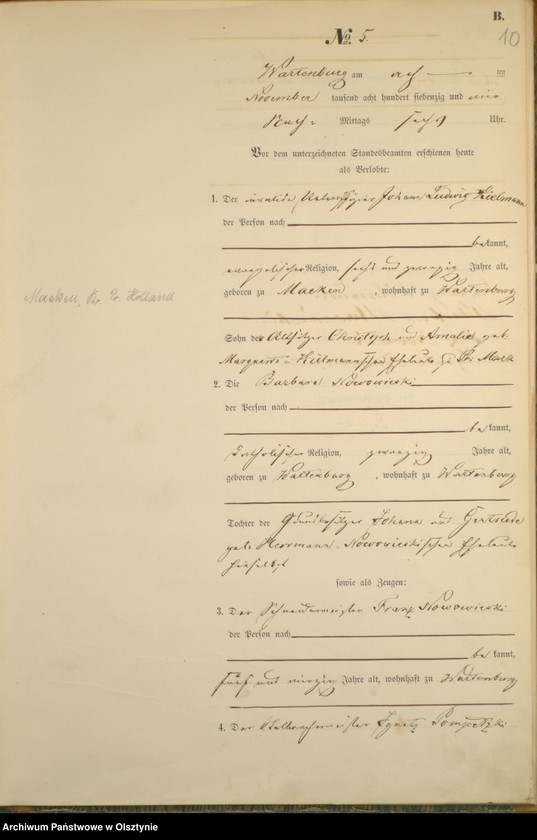 B.
10
No. 5.
Wartenburg am acht ten
November tausend acht hundert siebenzig und vier
Nach= Mittags sechs Uhr.
Vor dem unterzeichneten Standesbeamten erschienen heute
als Verlobte:
1. Der invalide Unteroffizier Johann Ludwig Hielmann
der Person nach
bekannt,
evangelischer Religion, sechs und zwanzig Jahre alt,
geboren zu Macken, wohnhaft zu Wartenburg
Macken, Kr. Pr. Holland
Sohn der Altsitzer Christoph und Amalie geb.
Hielmannschen Eheleute zu
2. Die Barbara Nowowieski
der Person nach
bekannt,
katholischer Religion, zwanzig Jahre alt,
geboren zu Wartenburg, wohnhaft zu Wartenburg
Tochter der Grundbesitzer Johann und Gertrude
geb. Herrmann Nowowieskischen Eheleute
hieselbst
sowie als Zeugen:
3. Der Schneidermeister Franz Nowowieski
der Person nach
bekannt,
fünf und vierzig Jahre alt, wohnhaft zu Wartenburg
4. Der Ignatz
Archiwum Państwowe w Olsztynie